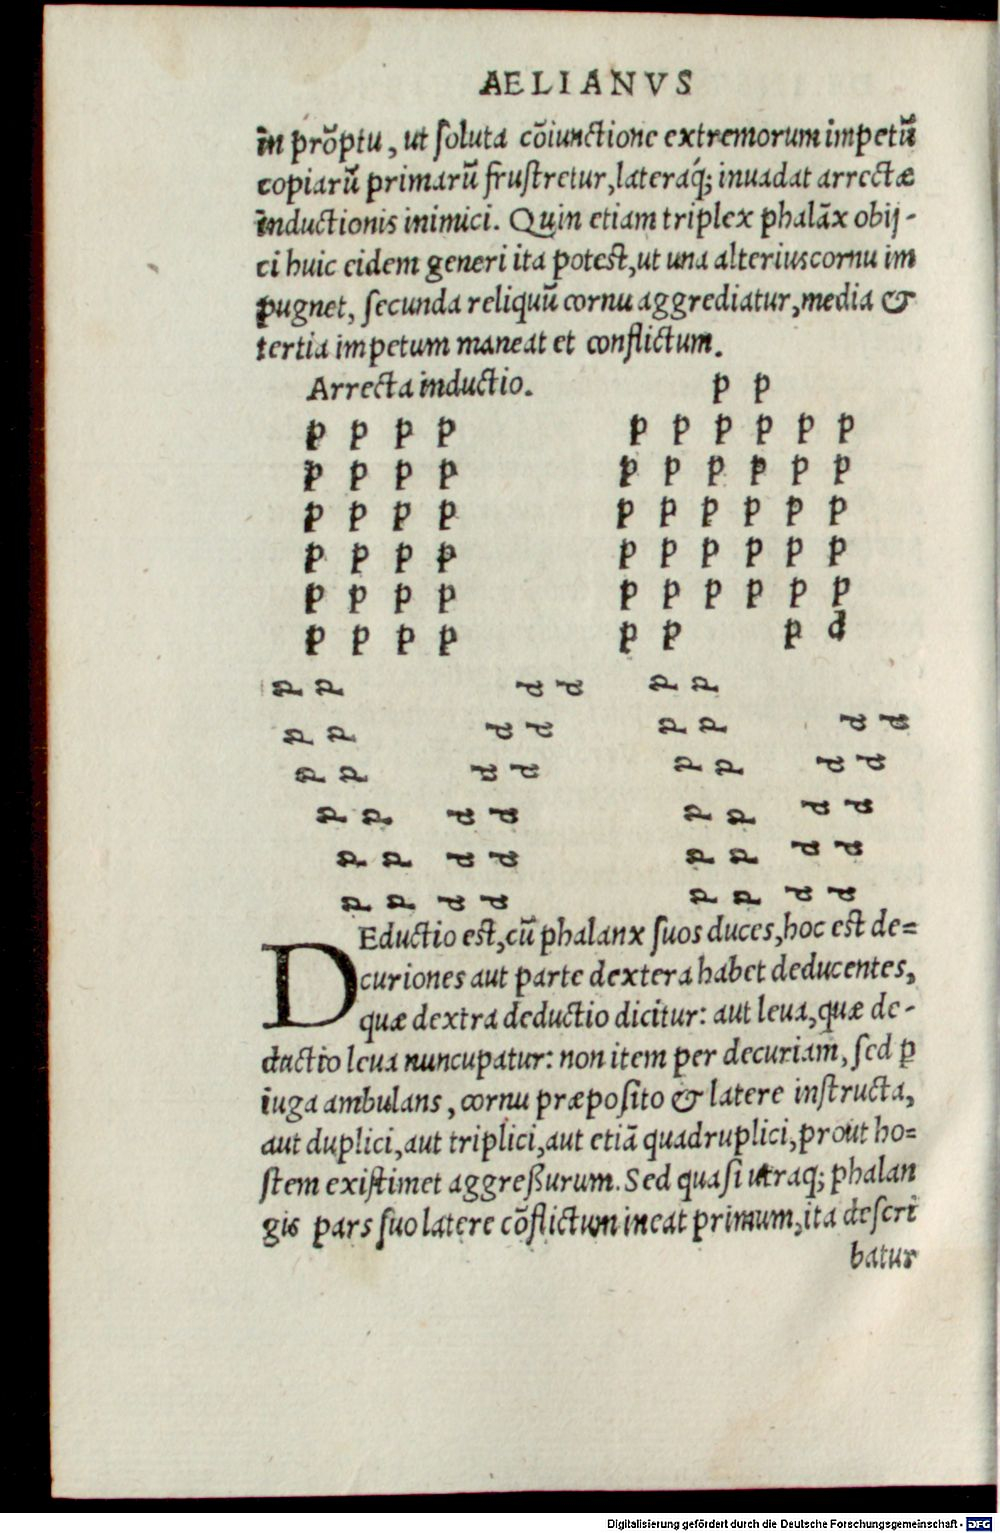 AELIANVS
in prõptu, ut ſoluta cõiunctione extremorum impetũ
copiarũ primarũ fruſtretur, lateráq; inuadat arrectæ
inductionis inimici. Quin etiam triplex phalãx obij-
ci huic eidem generi ita potest, ut una alterius cornu im
pugnet, ſecunda reliquũ cornu aggrediatur, media &
tertia impetum maneat et conflictum.
Arrecta inductio. p p
p p p p p p p p p p
p p p p p p p p p p
p p p p p p p p p p
p p p p p p p p p p
p p p p p p p p p p
p p p p p p p d
p p p p p p
p p p p p p p p
p p p p p p p p
p p p p p p p p
p p p p p p p p
p p p p p p p p
DEductio est, cũ phalanx ſuos duces, hoc est de=
curiones aut parte dextera habet deducentes,
quæ dextra deductio dicitur: aut leua, quæ de-
ductio leua nuncupatur: non item per decuriam, ſed ꝑ
iuga ambulans, cornu præpoſito & latere inſtructa,
aut duplici, aut triplici, aut etiã quadruplici, prout ho=
ſtem exiſtimet aggreßurum. Sed quaſi utraq; phalan
gis pars ſuo latere cõflictum ineat primum, ita deſcri
batur
Digitalisierung gefördert durch die Deutsche Forschungsgemeinschaft - DFG